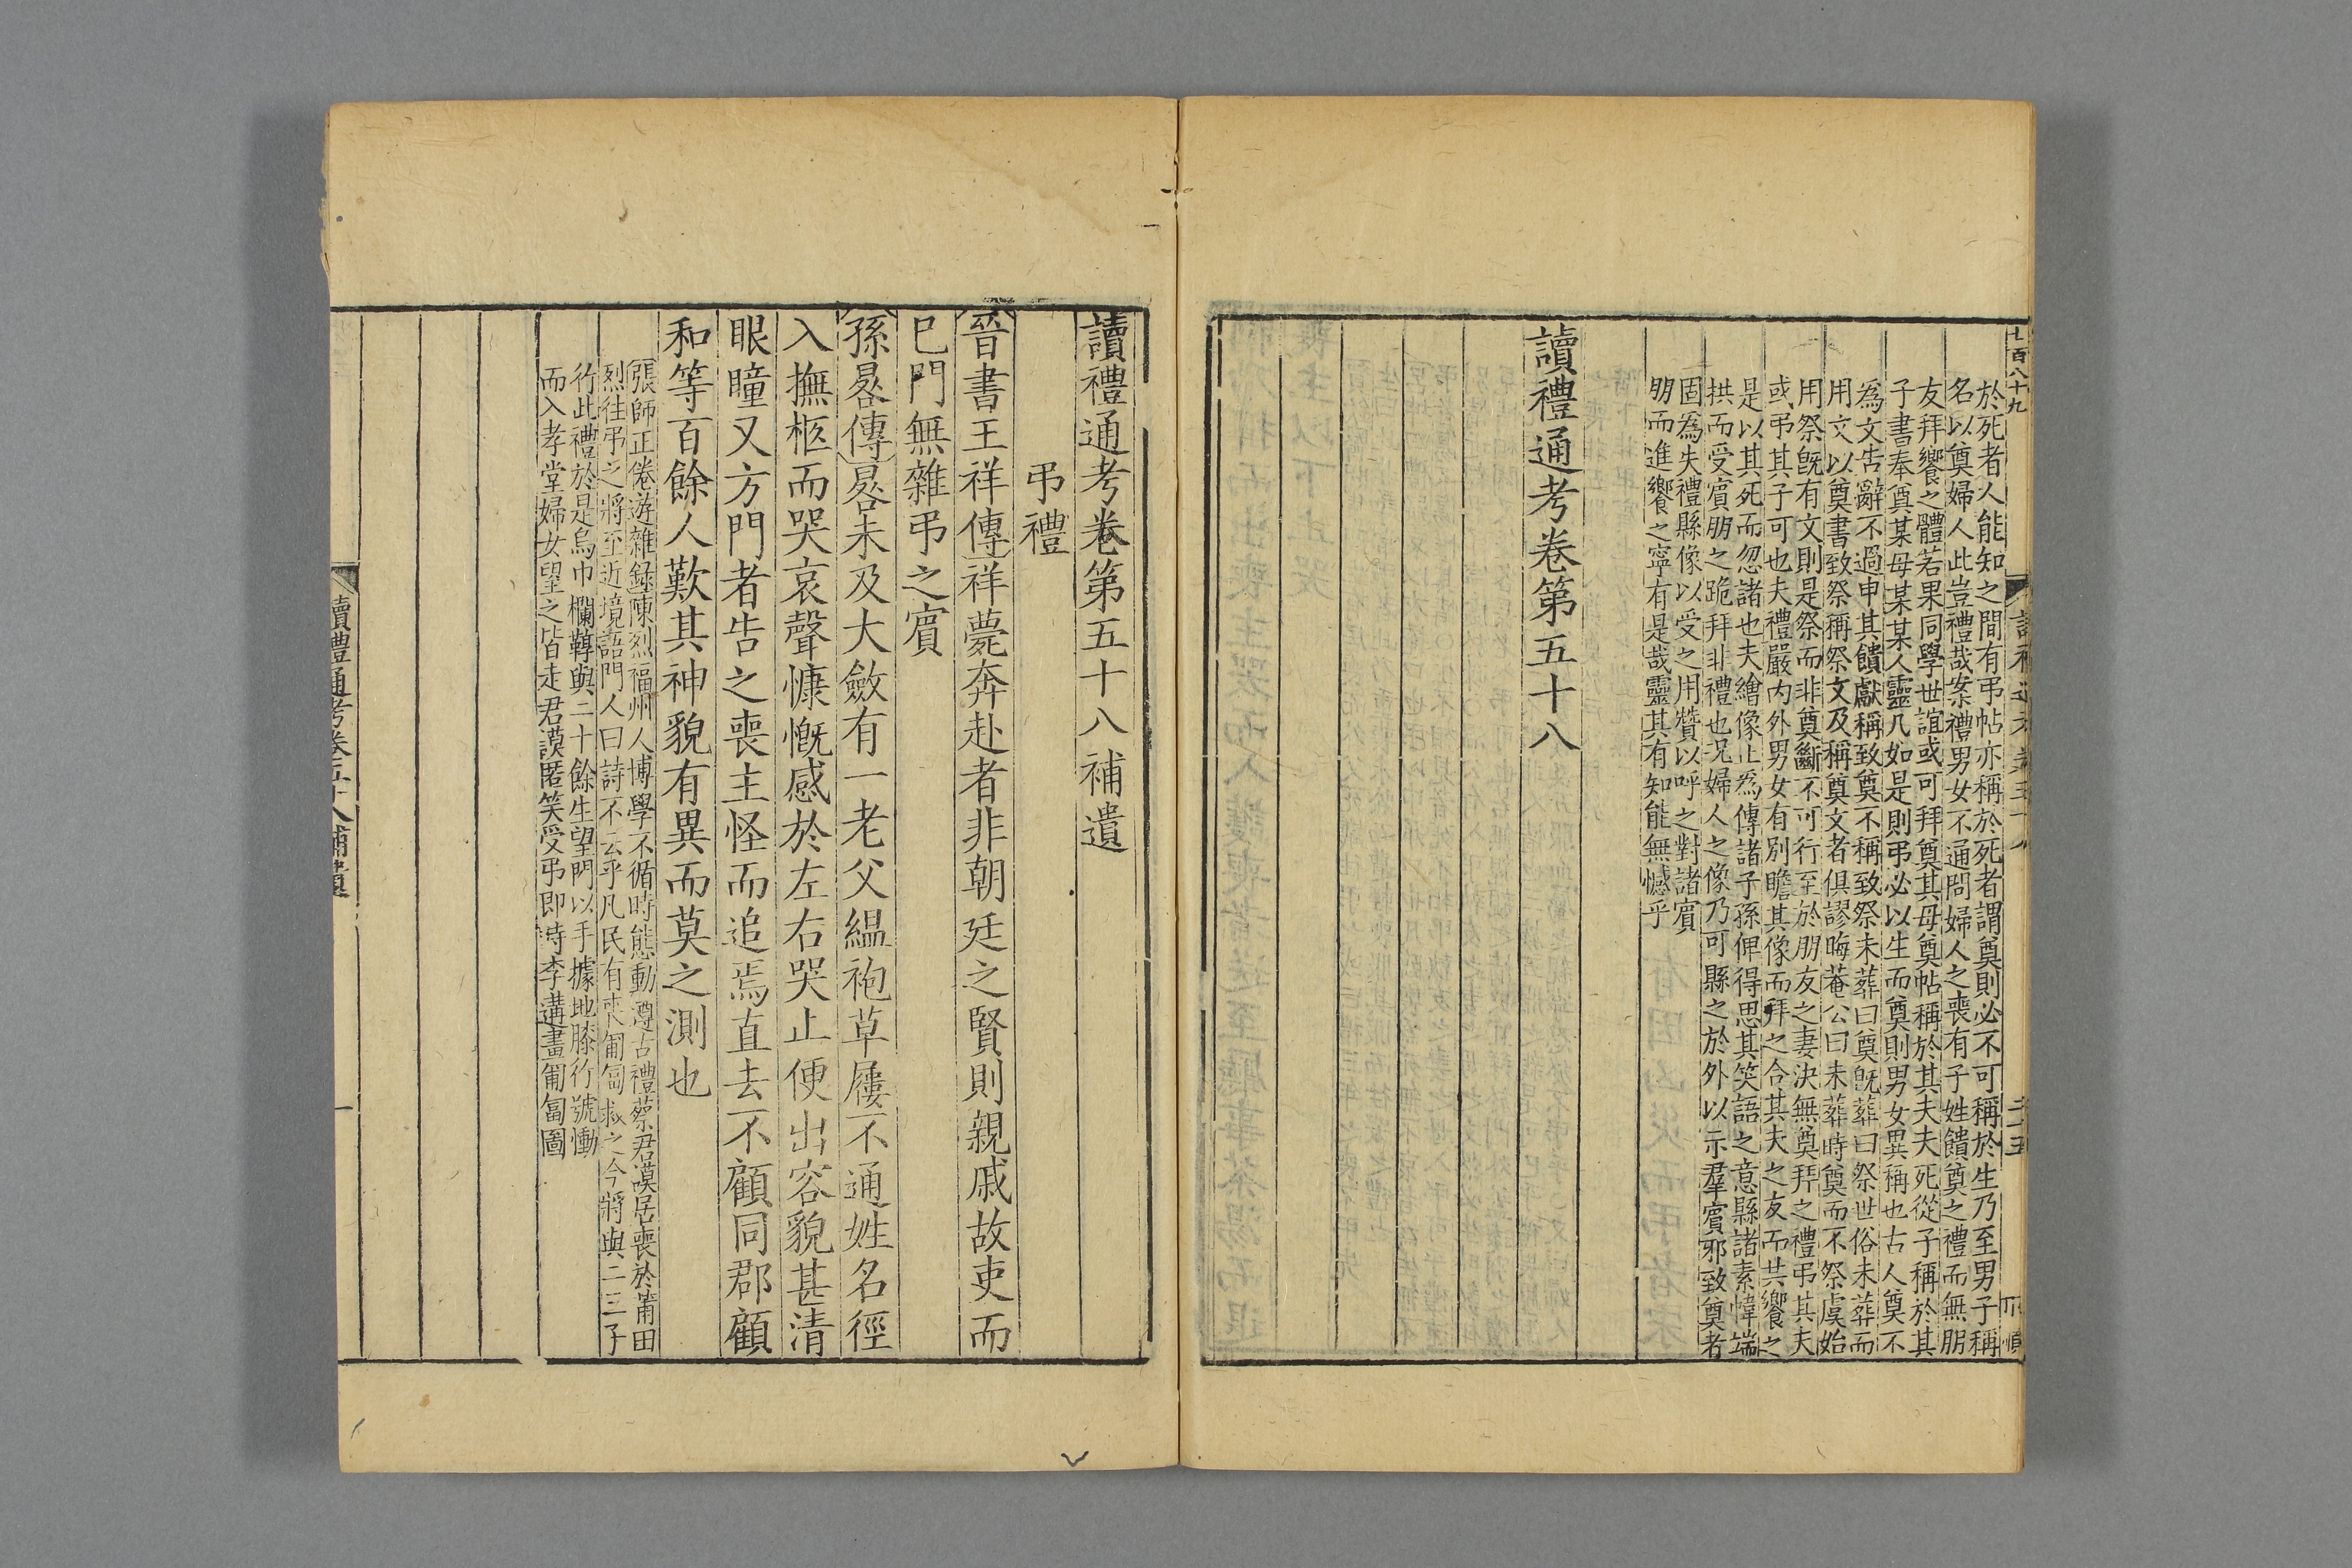 七百八十九
於死者人能知之間有弔帖亦稱於死者謂奠則必不可稱於生乃至男子稱
名以奠婦人此豈禮哉案禮男女不通問婦人之喪有子姓饋奠之禮而無朋
友拜饗之體若果同學世誼或可拜奠其母奠帖稱於其夫夫死從子稱於其
子書奉奠某母某某人靈凡如是則弔必以生而奠則男女異稱也古人奠不
爲文告辭不過申其饋獻稱致奠不稱致祭未葬曰奠旣葬曰祭世俗未葬而
用文以奠書致祭稱祭文及稱奠文者俱謬晦菴公曰未葬時奠而不祭虞始
用祭旣有文則是祭而非奠斷不可行至於朋友之妻決無奠拜之禮弔其夫
或弔其子可也夫禮嚴內外男女有別瞻其像而拜之合其夫之友而共饗之
是以其死而忽諸也夫繪像止爲傳諸子孫俾得思其笑語之意縣諸素幃端
拱而受賓朋之跪拜非禮也况婦人之像乃可縣之於外以示羣賓邪致奠者
固爲失禮縣像以受之用贊以呼之對諸賓
朋而進饗之寧有是哉靈其有知能無憾乎
讀禮通考卷第五十八
讀禮通考卷第五十八補遺
弔禮
晉書王祥傳祥薨奔赴者非朝廷之賢則親戚故吏而
已門無雜弔之賓
孫晷傳晷未及大斂有一老父緼袍草屨不通姓名徑
入撫柩而哭哀聲慷慨感於左右哭止便出容貌甚清
眼瞳又方門者告之喪主怪而追焉直去不顧同郡顧
和等百餘人歎其神貌有異而莫之測也
張師正倦游雜錄陳烈福州人博學不循時態動遵古禮蔡君謨居喪於莆田
烈往弔之將至近境語門人曰詩不云乎凡民有喪匍匐救之今將與二三子
行此禮於是烏巾欄鞟與二十餘生望門以手據地膝行號慟
而入孝堂婦女望之皆走君謨匿笑受弔卽時李遘畫匍匐圖
讀禮通考卷五十八補遺
一